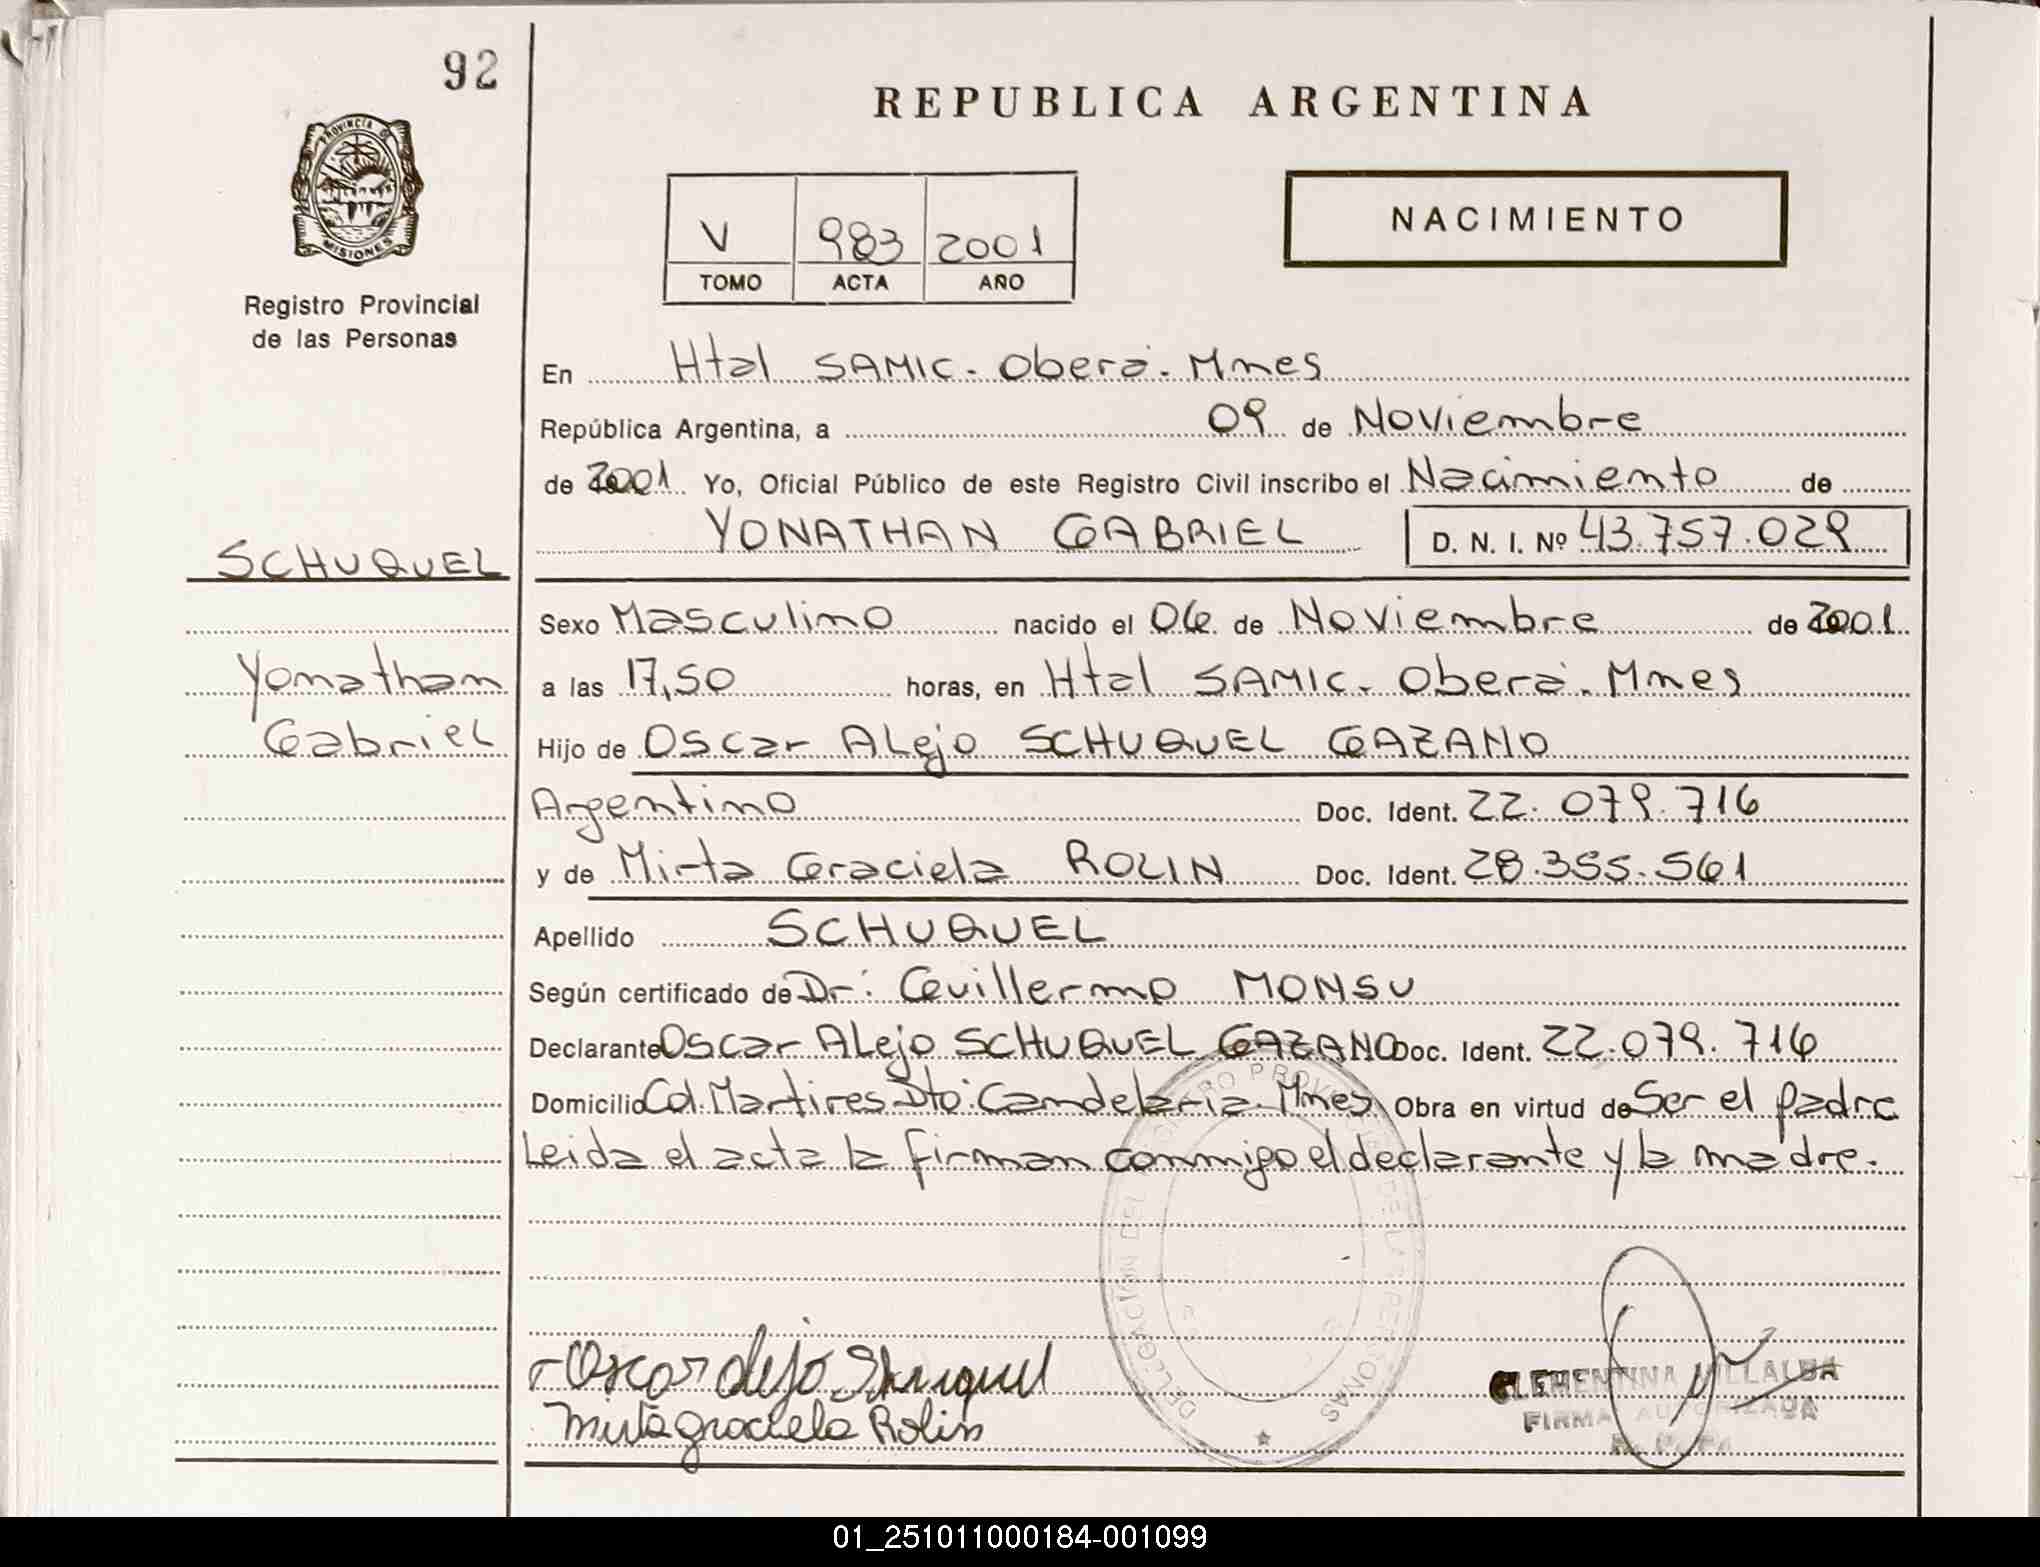 92
REPUBLICA ARGENTINA
PROVINCIA DE
MISIONES
Registro Provincial
de las Personas
V 983 2001
TOMO ACTA AÑO
NACIMIENTO
En Htal SAMIC. Oberá. Mnes
República Argentina, a 09 de Noviembre
de 2001 Yo, Oficial Público de este Registro Civil inscribo el Nacimiento de
YONATHAN GABRIEL D. N. I. Nº 43.757.029
SCHUQUEL
Sexo Masculino nacido el 06 de Noviembre de 2001
Yonathan
a las 17,50 horas, en Htal SAMIC. Oberá. Mnes
Gabriel
Hijo de Oscar Alejo SCHUQUEL GAZANO
Argentino Doc. Ident. 22.079.716
y de Mirta Graciela ROLIN Doc. Ident. 28.355.561
Apellido SCHUQUEL
Según certificado de Dr: Guillermo MONSU
Declarante Oscar Alejo SCHUQUEL GAZANO Doc. Ident. 22.079.716
Domicilio Cd. Martires Dto: Candelaria. Mnes Obra en virtud de Ser el padre
Leida el acta la firman conmigo el declarante y la madre.
DELEGACION DEL REGISTRO PROVINCIAL DE LAS PERSONAS
Oscar Alejo Schuquel
Mirta graciela Rolin
CLEMENTINA VILLALBA
FIRMA AUTORIZADA
01_251011000184-001099